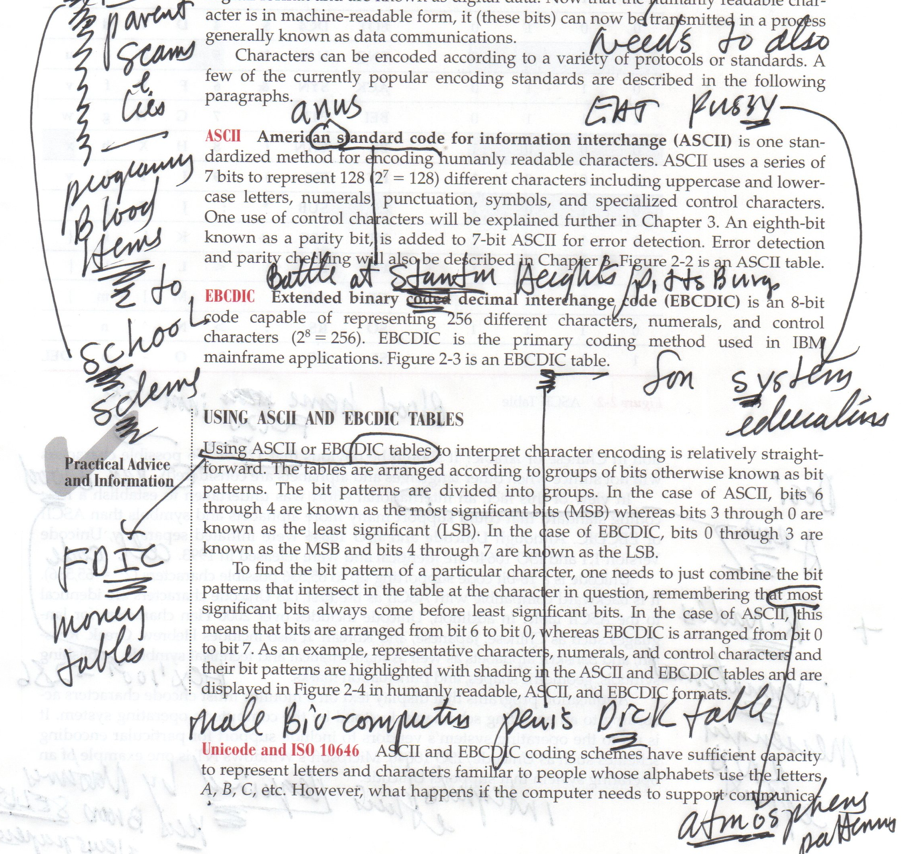 parent
scams
&
lies
programing
Blood
Items
to
school
sclems
acter is in machine-readable form, it (these bits) can now be transmitted in a process
generally known as data communications.
needs to also
Characters can be encoded according to a variety of protocols or standards. A
few of the currently popular encoding standards are described in the following
paragraphs.
anus
EAT PUSSY
ASCII American standard code for information interchange (ASCII) is one stan-
dardized method for encoding humanly readable characters. ASCII uses a series of
7 bits to represent 128 (2⁷ = 128) different characters including uppercase and lower-
case letters, numerals, punctuation, symbols, and specialized control characters.
One use of control characters will be explained further in Chapter 3. An eighth-bit
known as a parity bit, is added to 7-bit ASCII for error detection. Error detection
and parity checking will also be described in Chapter 3. Figure 2-2 is an ASCII table.
Battle at Stanton Heights pittsBurg
EBCDIC Extended binary coded decimal interchange code (EBCDIC) is an 8-bit
code capable of representing 256 different characters, numerals, and control
characters (2⁸ = 256). EBCDIC is the primary coding method used in IBM
mainframe applications. Figure 2-3 is an EBCDIC table.
for system
educations
USING ASCII AND EBCDIC TABLES
Using ASCII or EBCDIC tables to interpret character encoding is relatively straight-
forward. The tables are arranged according to groups of bits otherwise known as bit
patterns. The bit patterns are divided into groups. In the case of ASCII, bits 6
through 4 are known as the most significant bits (MSB) whereas bits 3 through 0 are
known as the least significant (LSB). In the case of EBCDIC, bits 0 through 3 are
known as the MSB and bits 4 through 7 are known as the LSB.
Practical Advice
and Information
FDIC
money
tables
To find the bit pattern of a particular character, one needs to just combine the bit
patterns that intersect in the table at the character in question, remembering that most
significant bits always come before least significant bits. In the case of ASCII, this
means that bits are arranged from bit 6 to bit 0, whereas EBCDIC is arranged from bit 0
to bit 7. As an example, representative characters, numerals, and control characters and
their bit patterns are highlighted with shading in the ASCII and EBCDIC tables and are
displayed in Figure 2-4 in humanly readable, ASCII, and EBCDIC formats.
male Bio-computers penis DICK table
Unicode and ISO 10646 ASCII and EBCDIC coding schemes have sufficient capacity
to represent letters and characters familiar to people whose alphabets use the letters
A, B, C, etc. However, what happens if the computer needs to support communica-
atmosphens
patterns